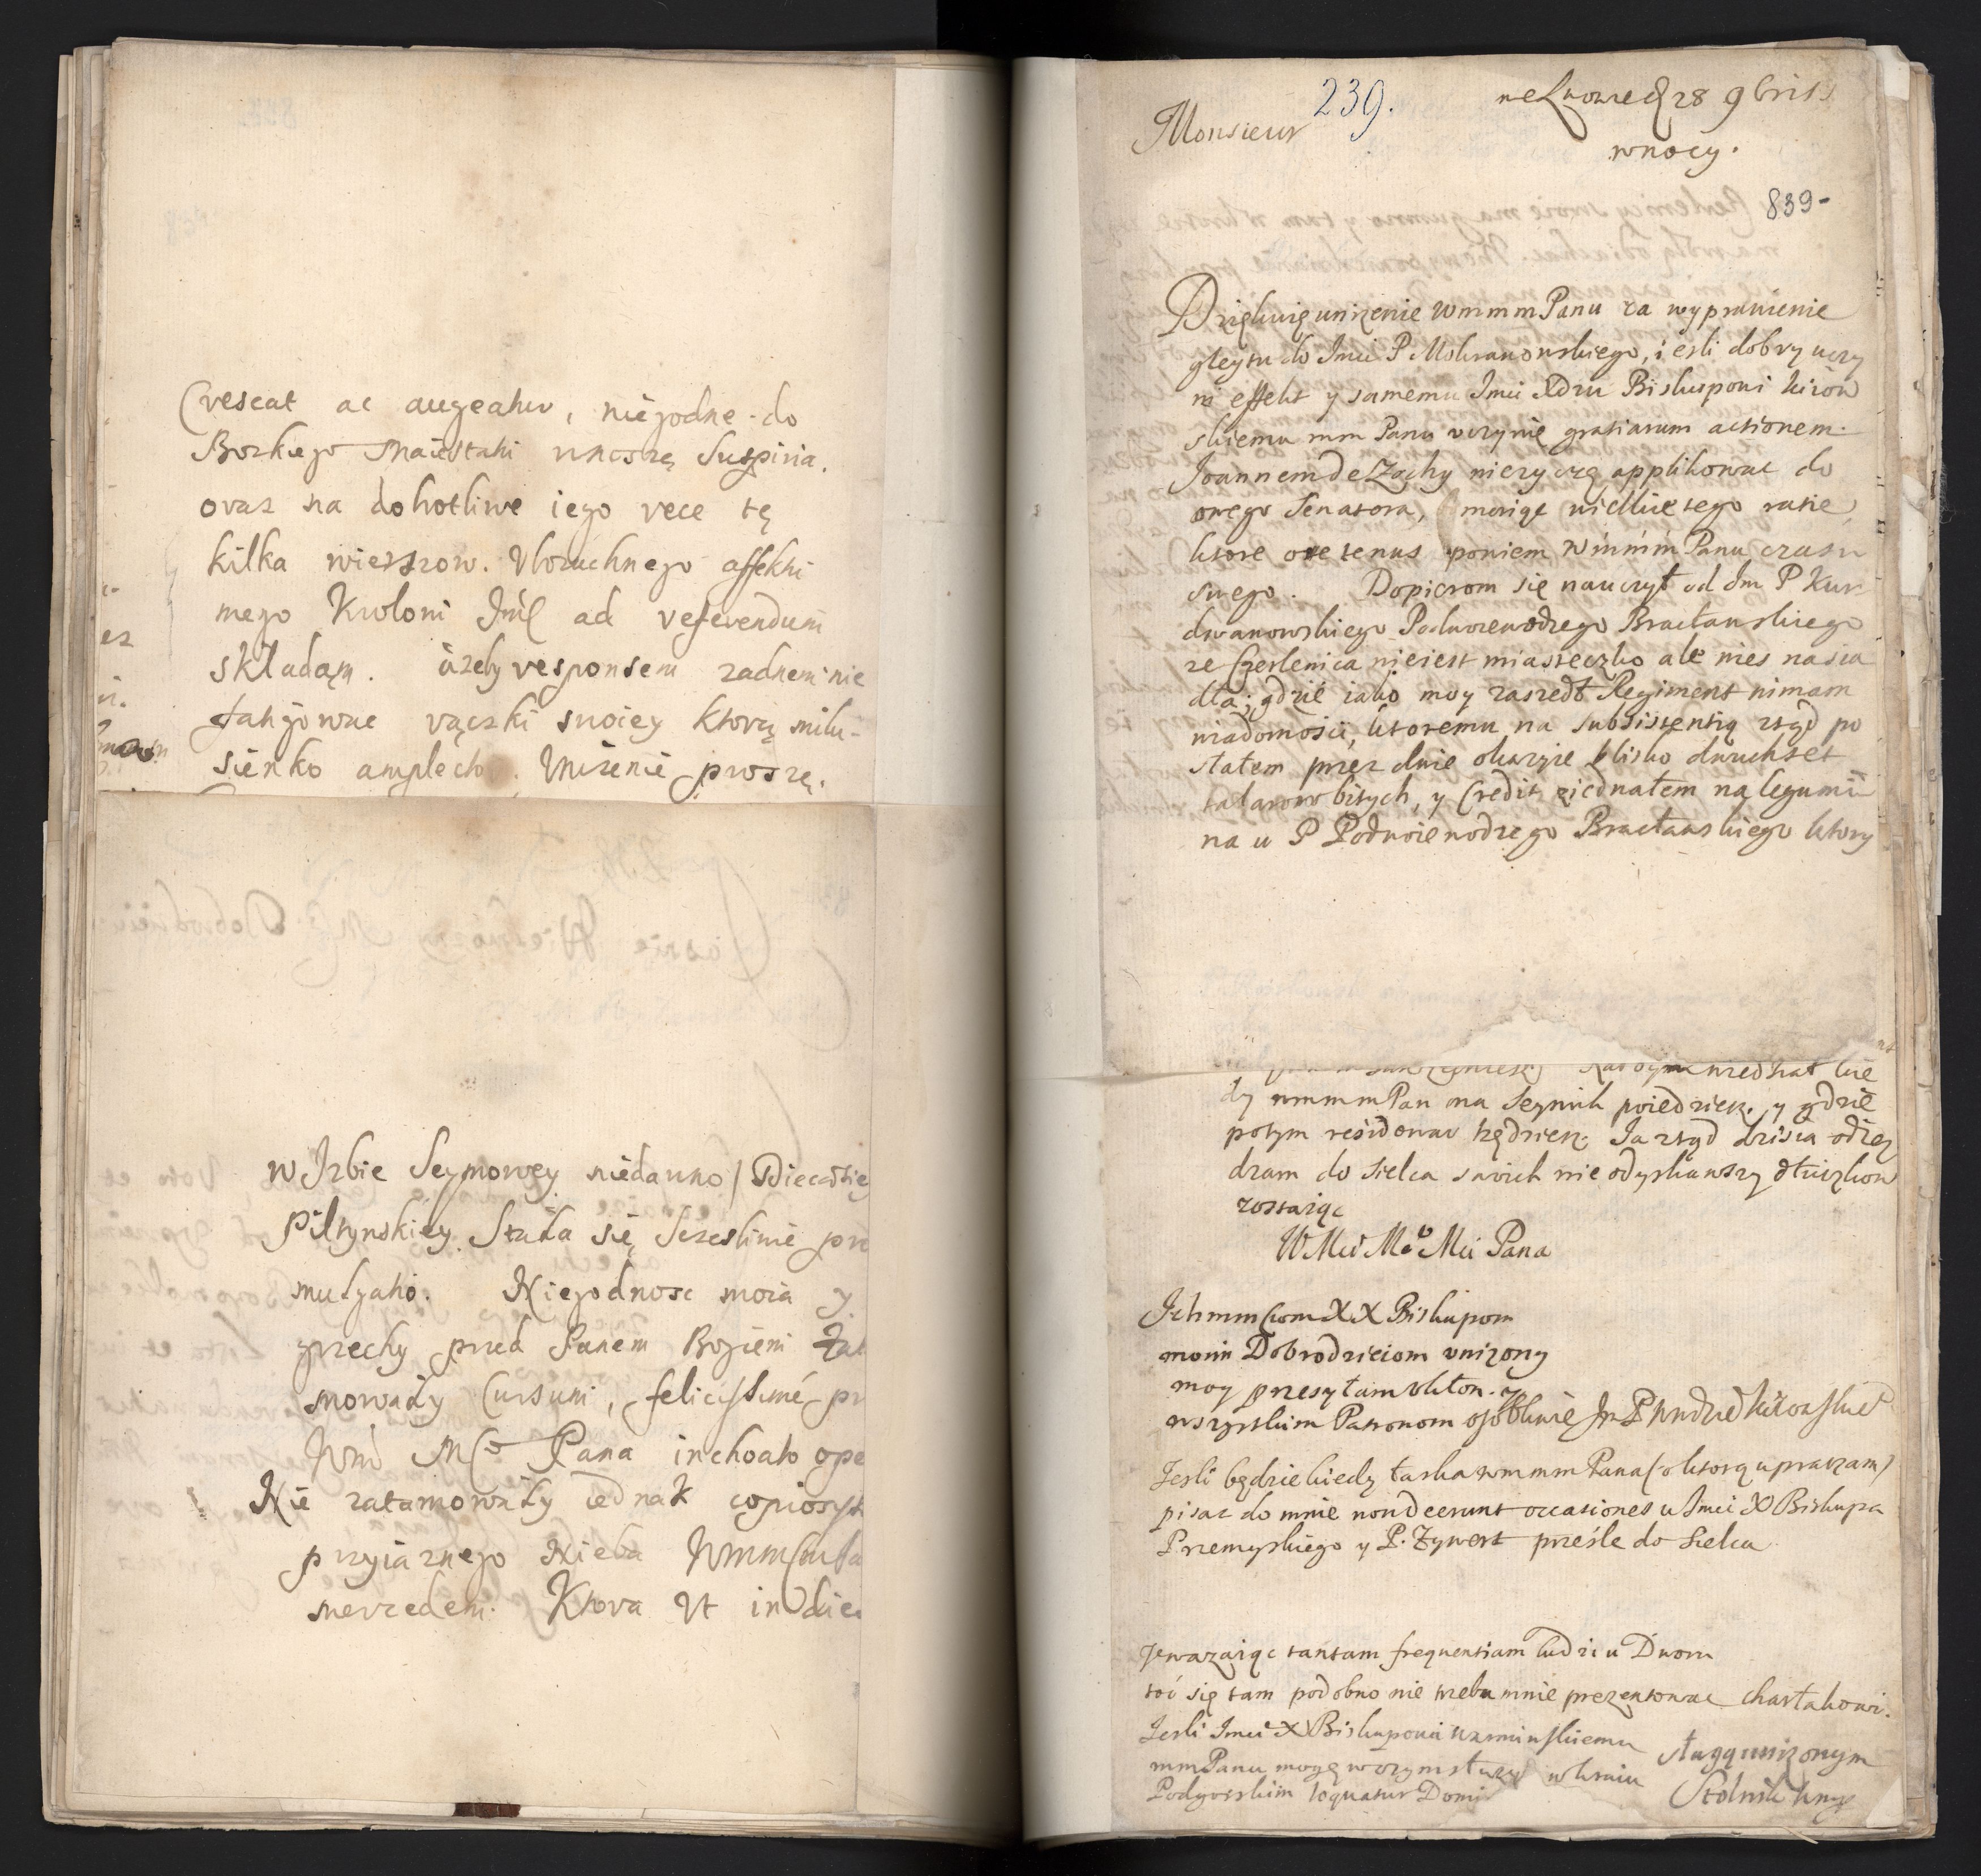 Crescat ac augeatur, niegodne do
Bozkiego Maiestatu wnoszę Suspiria.
oraz na dobotliwe iego rece tę
kilka wierszow. Vbozuchnego affektu
mego Krolowi Jmć ad referendum
składam. ażeby responsem zadnem nie
fatigowac rączki swoiey ktorą milu-
sienko amplector. Vnizenie proszę.
w Izbie Seymowey niedawno / Diecesiey
Piltynskiey Stała się Szczesliwie pr
mutatio. Niegodnosc moia y
grzechy przed Panem Bogiem Zat
mowały Cursum, felicissimé pr
Wmć Mo Pana inchoato ope
Nie zatamowały iednak copiosyt
przyiaznego Nieba
Ktora Vt in Dies
239.
we Lwowie d 28 9bris
Monsieur
w nocy.
839-
Dziękuię unizenie Wmmm Panu za wyprawienie
gleytu do Jmci P Mokranowskiego, iesli dobry uczy
ni effekt y samemu Jmci Xdzu Biskupowi kiiow
skiemu mm Panu uczynię gratiarum actionem.
Joannem de Zochy nie zyczę applikowac do
onego Senatora, maiąc wielkie tego racie,
ktore ore tenus powiem Wmmm Panu czasu
swego. Dopierom się nauczył od Jm P Kur
dwanowskiego Podwoiewodzego Bracławskiego
ze Czerlenica nieiest miasteczko ale wies nasia
dła; gdzie iako moy zaszedł Regiment nimam
wiadomosci, ktoremu na subsistentią ztąd po
słałem przez dwie okazyie blisko dwuchset
talarow bitych, y Credit ziednałem na legumi
na u P Podwoiewodzego Bracławskiego ktory
Radbym wiedział kie
dy wmmm Pan na Seymik poiedziesz. y gdzie
potym residowac będziesz. Ja ztąd dzisia odiez
dzam do Sielca swoich nie odyskawszy dłuzkow
zostaiąc
WMci Mo Mci Pana
Ichmm Ciom XX Biskupom
moim Dobrodzieiom vnizony
moy przesyłam vkłon. y
wszystkim Patronom osobliwie Jm P
Jesli będzie kiedy łaska wmmm Pana (o ktorą upraszam)
pisac do mnie non deerunt occasiones u Jmci X Biskupa
Przemyskiego y P. Zywert prześle do Sielca
Uwazaiąc tantam frequentiam ludzi u Dworu
toć się tam podobno nie trzeba mnie prezentowac chartakowi.
Jesli Jmci X Biskupowi warminskiemu
mm Panu mogę w czym słuzyc w kraiu
Podgorskim loquatur Domi
sługą unizonym
Stolnik